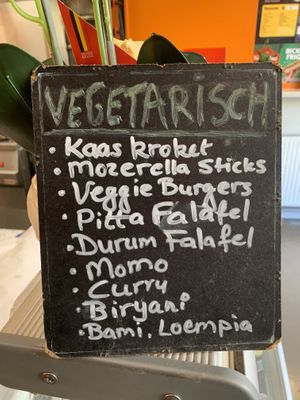 VEGETARISCH
• Kaas kroket
• Mozerella Sticks
• Veggie Burgers
• Pitta Falafel
• Durum Falafel
• Momo
• Curry
• Biryani
• Bami. Loempia